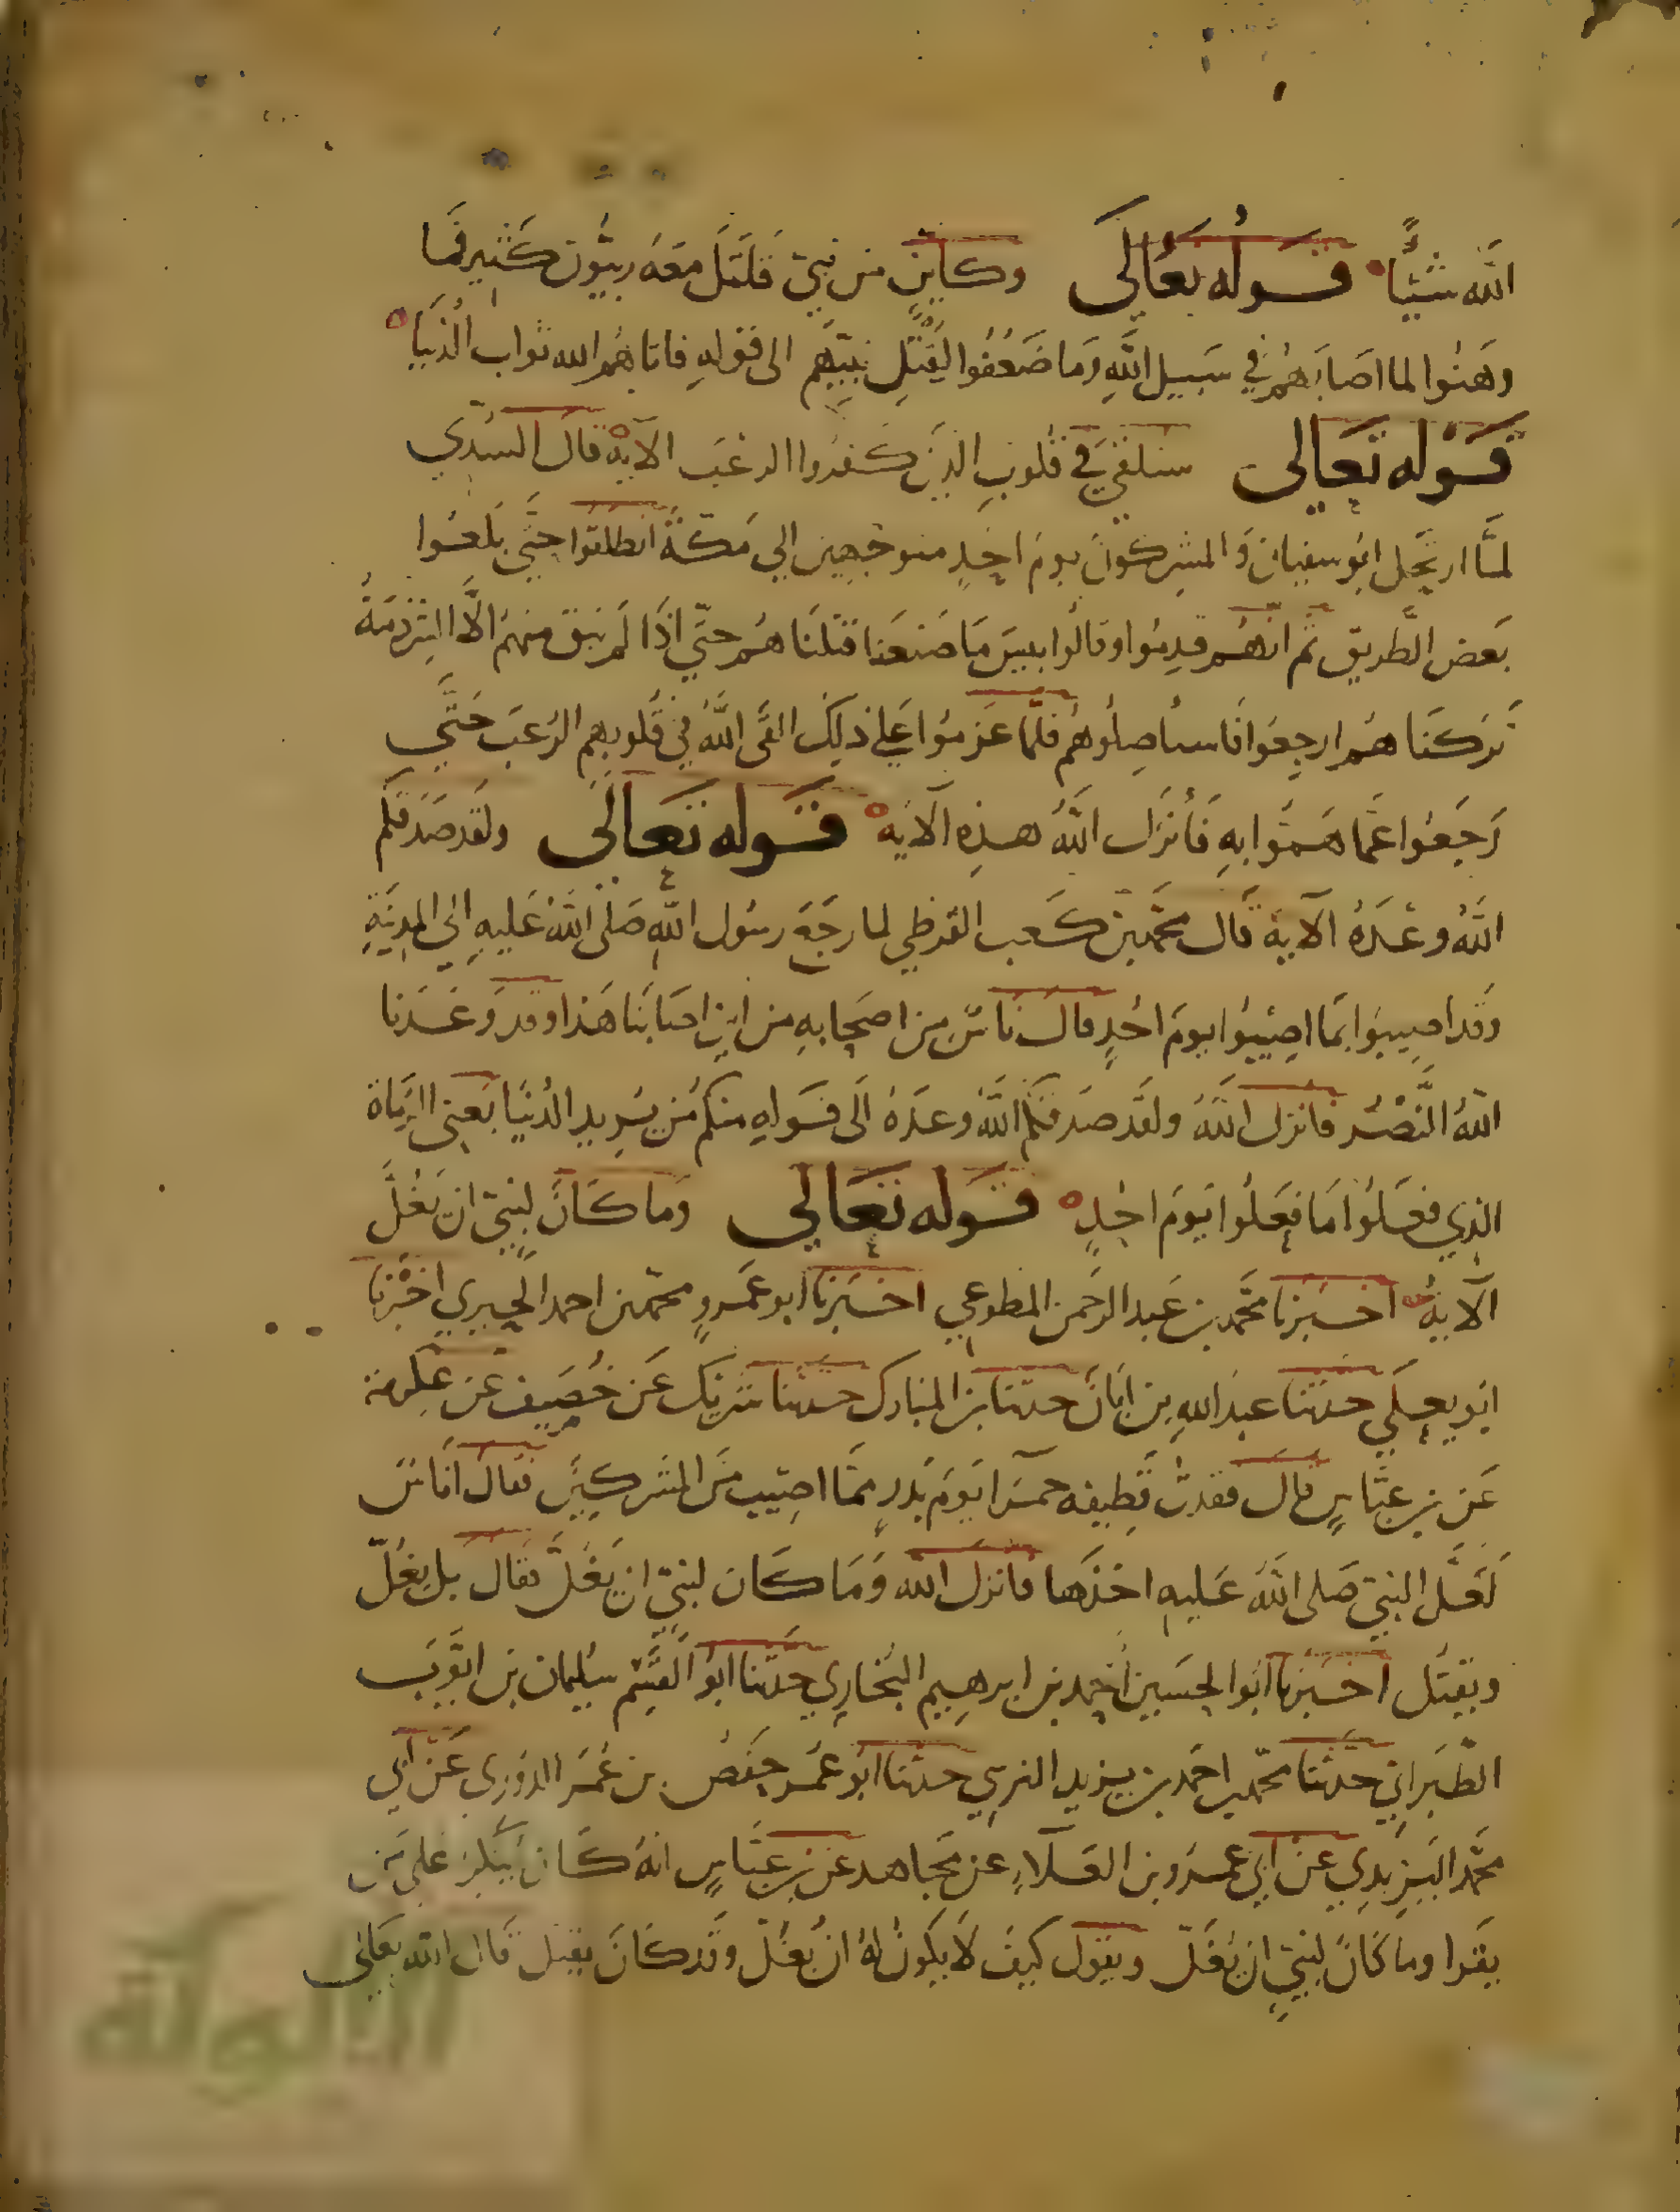 الله شيئًا قوله تعالى وكاين من نبي قتل معه ربيون كثير فما
وهنوا لما اصابهم في سبيل الله وما ضعفوا لقتل نبيهم الى قوله فاتاهم الله ثواب الدنيا
قوله تعالى سنلقي في قلوب الذين كفروا الرعب الآية قال السدي
لما ارتحل ابو سفيان والمشركون يوم احد متوجهين الي مكة انطلقوا حتى بلغوا
بعض الطريق ثم انهم قدموا وقالوا بيس ما صنعنا قتلناهم حتى اذا لم يبق منهم الا الشرذمة
تركناهم ارجعوا فاستأصلوهم فلما عزموا علي ذلك القى الله في قلوبهم الرعب حتي
رجعوا عما هموا به فأنزل الله هذه الآية قوله تعالى ولقد صدقكم
الله وعده الآية قال محمد بن كعب القرظي لما رجع رسول الله صلى الله عليه الى المدينة
وقد اصيبوا بما اصيبوا يوم احد قال ناس من اصحابه من اين اصابنا هذا وقد وعدنا
الله النصر فانزل الله ولقد صدقكم الله وعده الى قوله منكم من يريد الدنيا يعني الرماة
الذي فعلوا ما فعلوا يوم احد قوله تعالي وما كان لنبي ان يغل
الآية اخبرنا محمد بن عبد الرحمن المطوعي اخبرنا ابو عمرو محمد بن احمد الحيري اخبرنا
ابو يعلي حدثنا عبد الله بن ابان حدثنا بن المبارك حدثنا شريك عن خصيف عن عكرمة
عن بن عباس قال فقدت قطيفه حمرا يوم بدر مما اصيب من المشركين فقال اناس
لعل النبي صلى الله عليه اخذها فانزل الله وما كان لنبي ان يغل فقال بل يغل
ويقتل اخبرنا ابو الحسين احمد بن ابرهيم البخاري حدثنا ابو القسم سليمان بن ايوب
الطبراني حدثنا محمد بن احمد بن يزيد النرسي حدثنا ابو عمر حفص بن عمر الدوري عن ابي
محمد اليزيدي عن ابي عمرو بن العلاء عن مجاهد عن بن عباس انه كان ينكر على من
يقرا وما كان لنبي ان يغل ويقول كيف لا يكون له ان يغل وقد كان يقتل قال الله تعالى
الألوكة